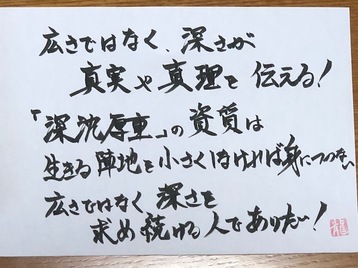 広さではなく、深さが
真実や真理を伝える！
「深沈厚重」の資質は
生きる陣地を小さくしなければ身につかない
広さではなく深さを
求め続ける人でありたい！